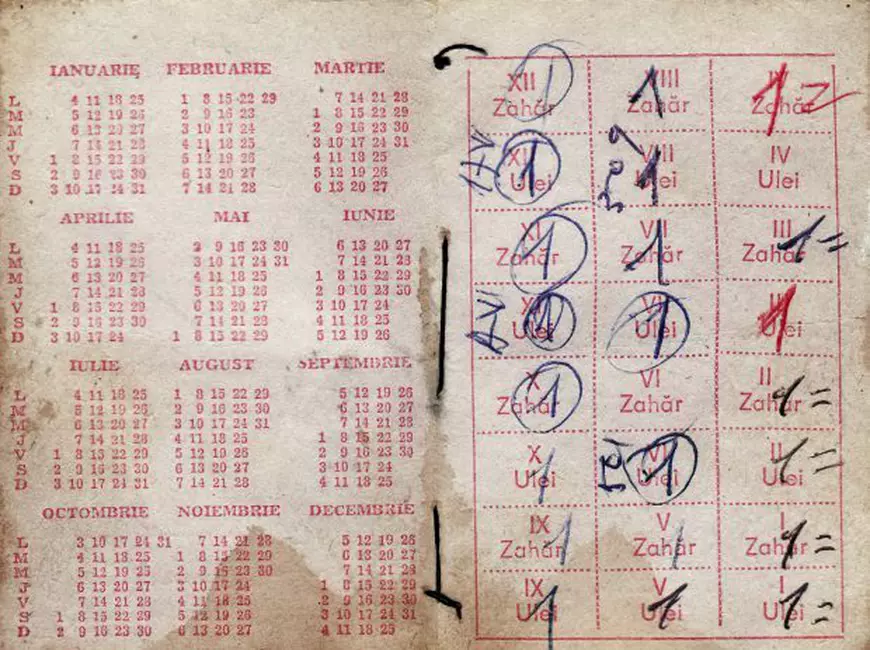 IANUARIE FEBRUARIE MARTIE
L 4 11 18 25 1 8 15 22 29 7 14 21 28
M 5 12 19 26 2 9 16 23 1 8 15 22 29
M 6 13 20 27 3 10 17 24 2 9 16 23 30
J 7 14 21 28 4 11 18 25 3 10 17 24 31
V 1 8 15 22 29 5 12 19 26 4 11 18 25
S 2 9 16 23 30 6 13 20 27 5 12 19 26
D 3 10 17 24 31 7 14 21 28 6 13 20 27
APRILIE MAI IUNIE
L 4 11 18 25 2 9 16 23 30 6 13 20 27
M 5 12 19 26 3 10 17 24 31 7 14 21 28
M 6 13 20 27 4 11 18 25 1 8 15 22 29
J 7 14 21 28 5 12 19 26 2 9 16 23 30
V 1 8 15 22 29 6 13 20 27 3 10 17 24
S 2 9 16 23 30 7 14 21 28 4 11 18 25
D 3 10 17 24 1 8 15 22 29 5 12 19 26
IULIE AUGUST SEPTEMBRIE
L 4 11 18 25 1 8 15 22 29 5 12 19 26
M 5 12 19 26 2 9 16 23 30 6 13 20 27
M 6 13 20 27 3 10 17 24 31 7 14 21 28
J 7 14 21 28 4 11 18 25 1 8 15 22 29
V 1 8 15 22 29 5 12 19 26 2 9 16 23 30
S 2 9 16 23 30 6 13 20 27 3 10 17 24
D 3 10 17 24 31 7 14 21 28 4 11 18 25
OCTOMBRIE NOIEMBRIE DECEMBRIE
L 3 10 17 24 31 7 14 21 28 5 12 19 26
M 4 11 18 25 1 8 15 22 29 6 13 20 27
M 5 12 19 26 2 9 16 23 30 7 14 21 28
J 6 13 20 27 3 10 17 24 1 8 15 22 29
V 7 14 21 28 4 11 18 25 2 9 16 23 30
S 1 8 15 22 29 5 12 19 26 3 10 17 24 31
D 2 9 16 23 30 6 13 20 27 4 11 18 25
XII VIII IV
Zahăr 1 Zahăr 1 Zahăr 1
XII VIII IV
Ulei 1 Ulei 1 Ulei
XI VII III
Zahăr 1 Zahăr 1 Zahăr 1 =
XI VII III
Ulei 1 Ulei 1 Ulei 1
X VI II
Zahăr 1 Zahăr Zahăr 1 =
X VI II
Ulei 1 Ulei 1 Ulei 1 =
IX V I
Zahăr 1 Zahăr 1 Zahăr 1 =
IX V I
Ulei 1 Ulei 1 Ulei 1 =